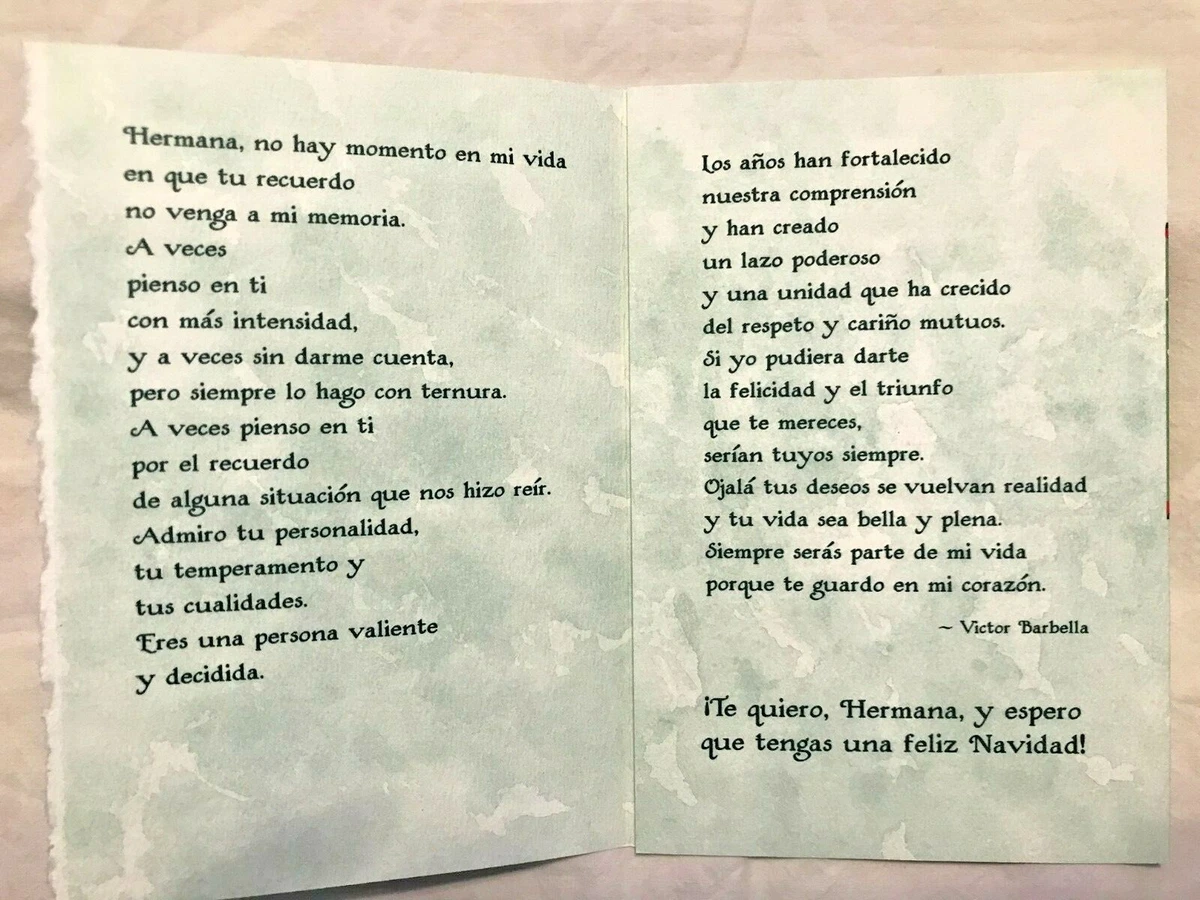 Hermana, no hay momento en mi vida
en que tu recuerdo
no venga a mi memoria.
A veces
pienso en ti
con más intensidad,
y a veces sin darme cuenta,
pero siempre lo hago con ternura.
A veces pienso en ti
por el recuerdo
de alguna situación que nos hizo reír.
Admiro tu personalidad,
tu temperamento y
tus cualidades.
Eres una persona valiente
y decidida.
Los años han fortalecido
nuestra comprensión
y han creado
un lazo poderoso
y una unidad que ha crecido
del respeto y cariño mutuos.
Si yo pudiera darte
la felicidad y el triunfo
que te mereces,
serían tuyos siempre.
Ojalá tus deseos se vuelvan realidad
y tu vida sea bella y plena.
Siempre serás parte de mi vida
porque te guardo en mi corazón.
~ Victor Barbella
¡Te quiero, Hermana, y espero
que tengas una feliz Navidad!